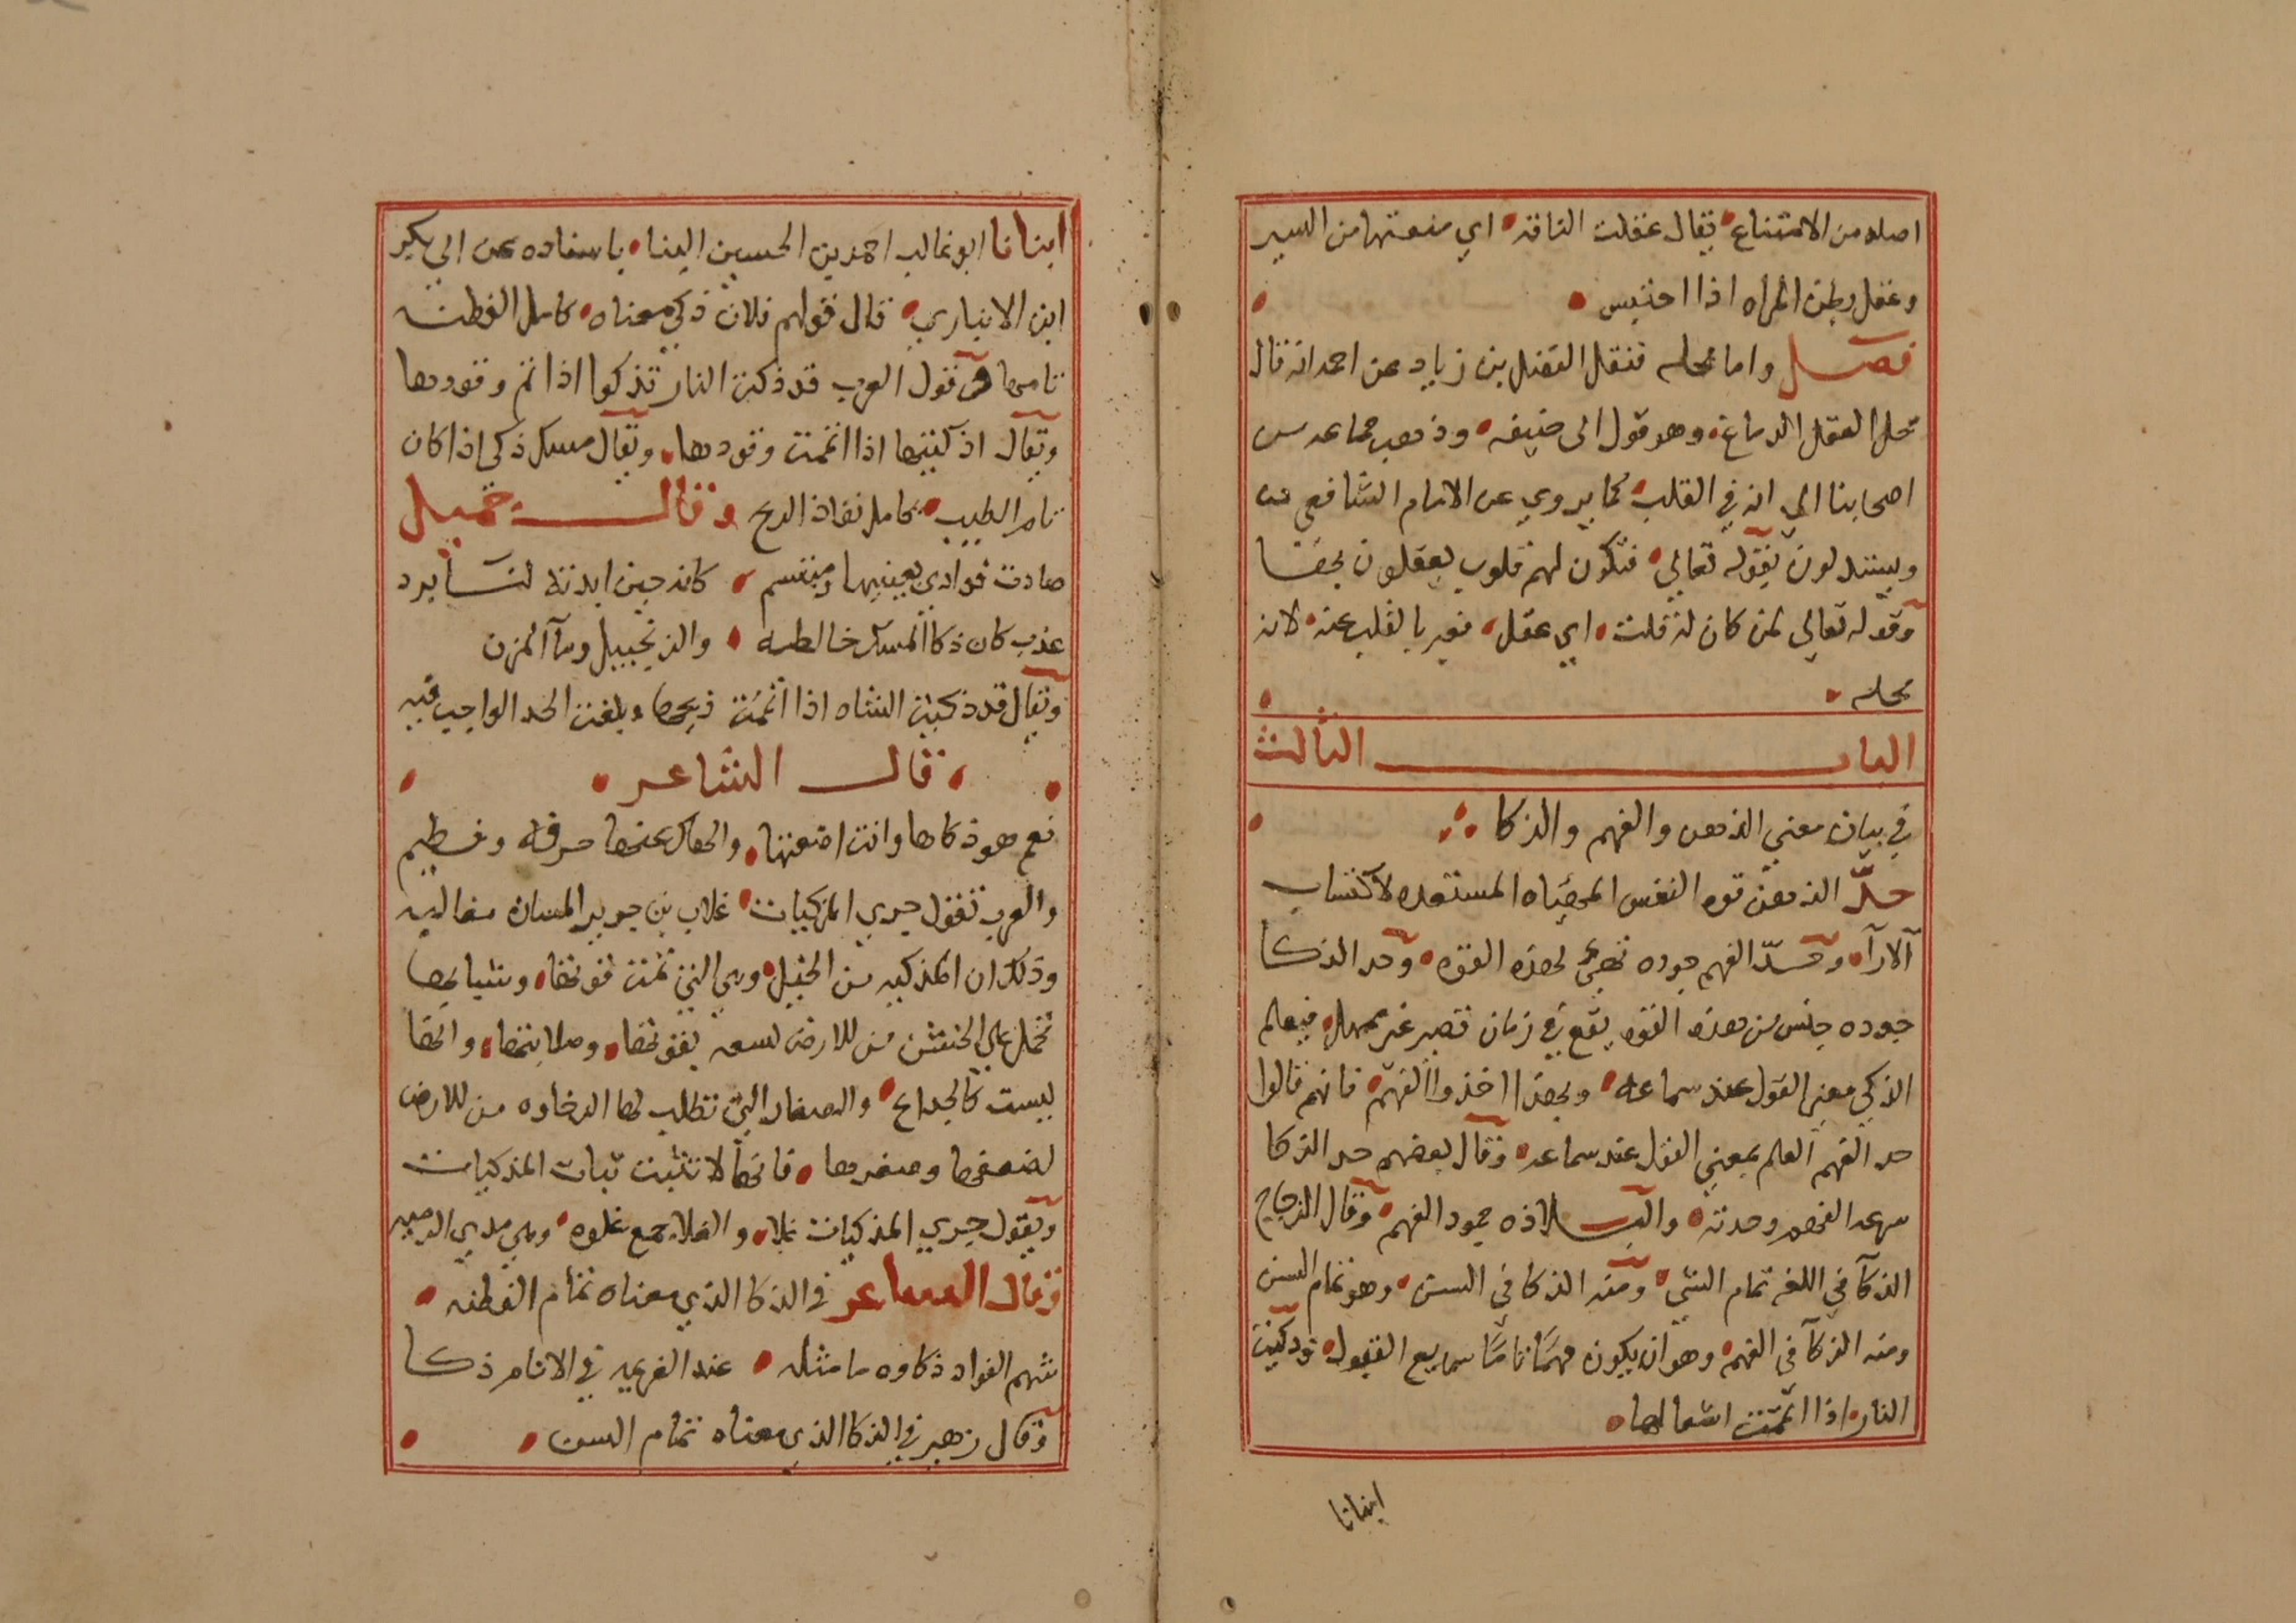 اصله من الامتناع يقال عقلت الناقه اي منعتها من السير
وعقل بطن المراه اذا احتبس
فصل واما محله فنقل الفضل بن زياد عن احمد انه قال
محل العقل الدماغ وهو قول ابى حنيفه وذهب جماعه من
اصحابنا الي انه في القلب كما يروي عن الامام الشافعي
ويستدلون بقوله تعالي فتكون لهم قلوب يعقلون بها
وقوله تعالي لمن كان له قلب اي عقل فعبر بالقلب عنه لانه
محله
الباب الثالث
في بيان معني الذهن والفهم والذكا
حدّ الذهن قوه النفس المهياه المستعده لاكتساب
الارآ وحدّ الفهم جوده تهيئ لهذه القوه وحد الذكا
جوده حدس من هذه القوه يقع في زمان قصير غير ممهل فيعلم
الذكي معني القول عند سماعه وبهذا اخذوا الفهم فانهم قالوا
حد الفهم العلم بمعني القول عند سماعه وقال بعضهم حد الذكا
سرعه الفهم وحدته والبلاده جمود الفهم وقال الزجاج
الذكآ في اللغه تمام الشي ومنه الذكا في السن وهو تمام السن
ومنه الذكآ في الفهم وهو ان يكون فهمًا تامًا سريع القبول وذكيت
النار اذا اتممت اشعالها
انبانا
انبانا ابو غالب احمد بن الحسين البنا باسناده عن ابي بكر
ابن الانباري قال قولهم فلان ذكي معناه كامل الفطنه
تامها من قول العرب قد ذكت النار تذكوا اذا تم وقودها
ويقال اذكيتها اذا اتممت وقودها ويقال مسك ذكي اذا كان
تام الطيب كامل نفاذ الريح وقال جميل
صادت فوادي بعينيها ومبتسم كانه حين ابدته لنا برد
عذب كان ذكا المسك خالطه والزنجبيل ومآ المزن
ويقال قد ذكيت الشاه اذا اتممت ذبحها وبلغت الحد الواجب فيه
قال الشاعر
نعم هو ذكاها وانت اضعتها والهاك عنها حرفه وفطيم
والعرب تقول جري المذكيات غلاب بن جرير المسان مغالبه
وذلك ان المذكيه من الخيل وهي التي تمت قوتها وشبابها
تحمل علي الخشن من الارض لسعه بقوتها وصلابتها وانها
ليست كالجداع والصغار التي تطلب لها الرخاوه من الارض
لضعفها وصغرها فانها لا تثبت ثبات المذكيات
ويقول جري المذكيات غلا والغلا جمع غلوه وهي مدي الرميه
وقال الشاعر في الذكا الذي معناه تمام الفطنه
شهم الفواد ذكاوه ما مثله عند العزيمه في الانام ذكا
وقال زهير في الذكا الذي معناه تمام السن